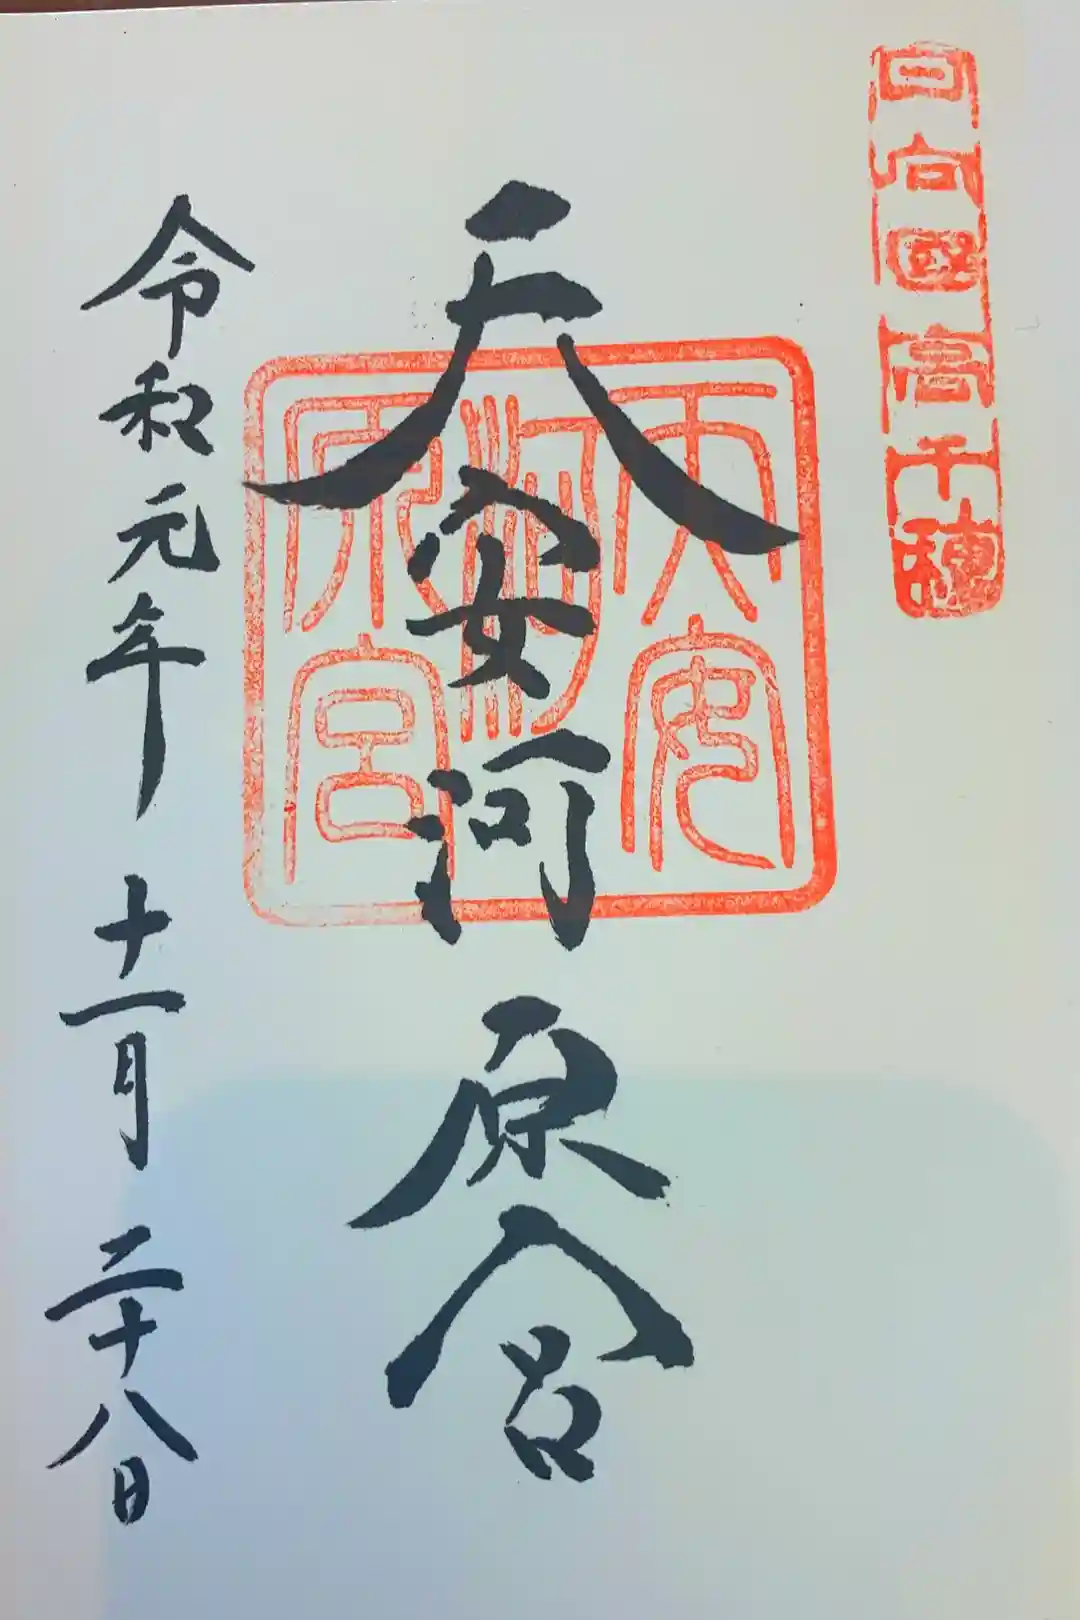 日向國高千穂
天安河原宮
天安河原宮
令和元年十一月二十八日